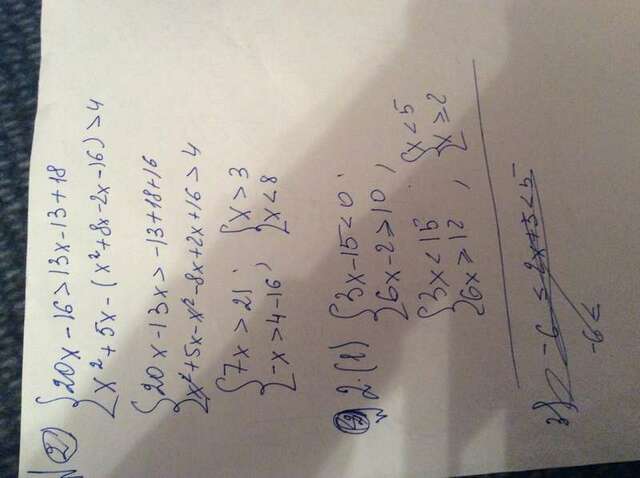 N 2)
{20x - 16 > 13x - 13 + 18
{x² + 5x - (x² + 8x - 2x - 16) > 4
{20x - 13x > -13 + 18 + 16
{x² + 5x - x² - 8x + 2x + 16 > 4
{7x > 21; {x > 3
{-x > 4 - 16, {x < 8
N 2. (1) {3x - 15 < 0;
{6x - 2 ≥ 10,
{3x < 15; {x < 5
{6x ≥ 12, {x ≥ 2
3) -6 < 2x + 3 < 5
-6 <